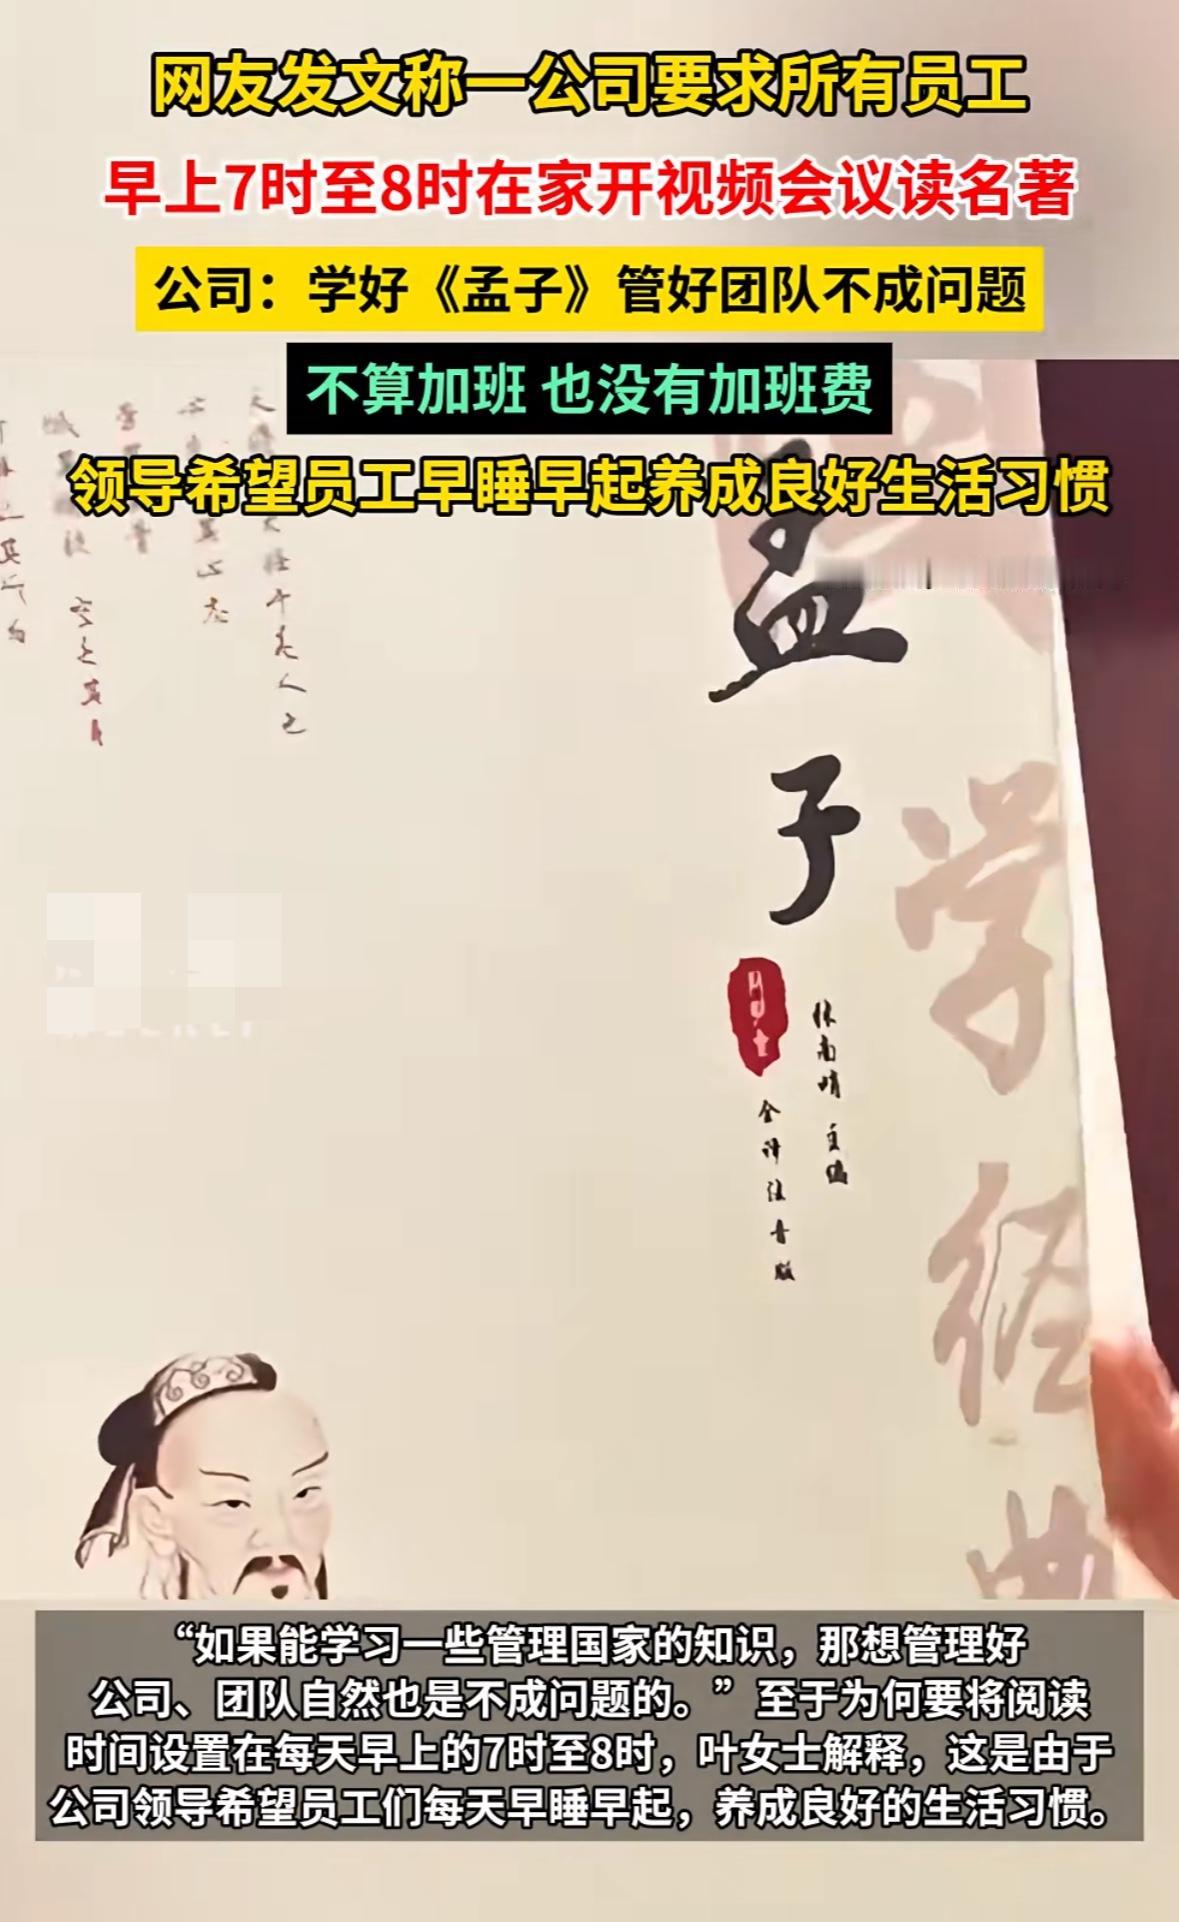 网友发文称一公司要求所有员工
早上7时至8时在家开视频会议读名著
公司：学好《孟子》管好团队不成问题
不算加班 也没有加班费
领导希望员工早睡早起养成良好生活习惯
孟子
学经典
主编
全译注音版
“如果能学习一些管理国家的知识，那想管理好
公司、团队自然也是不成问题的。”至于为何要将阅读
时间设置在每天早上的7时至8时，叶女士解释，这是由于
公司领导希望员工们每天早睡早起，养成良好的生活习惯。